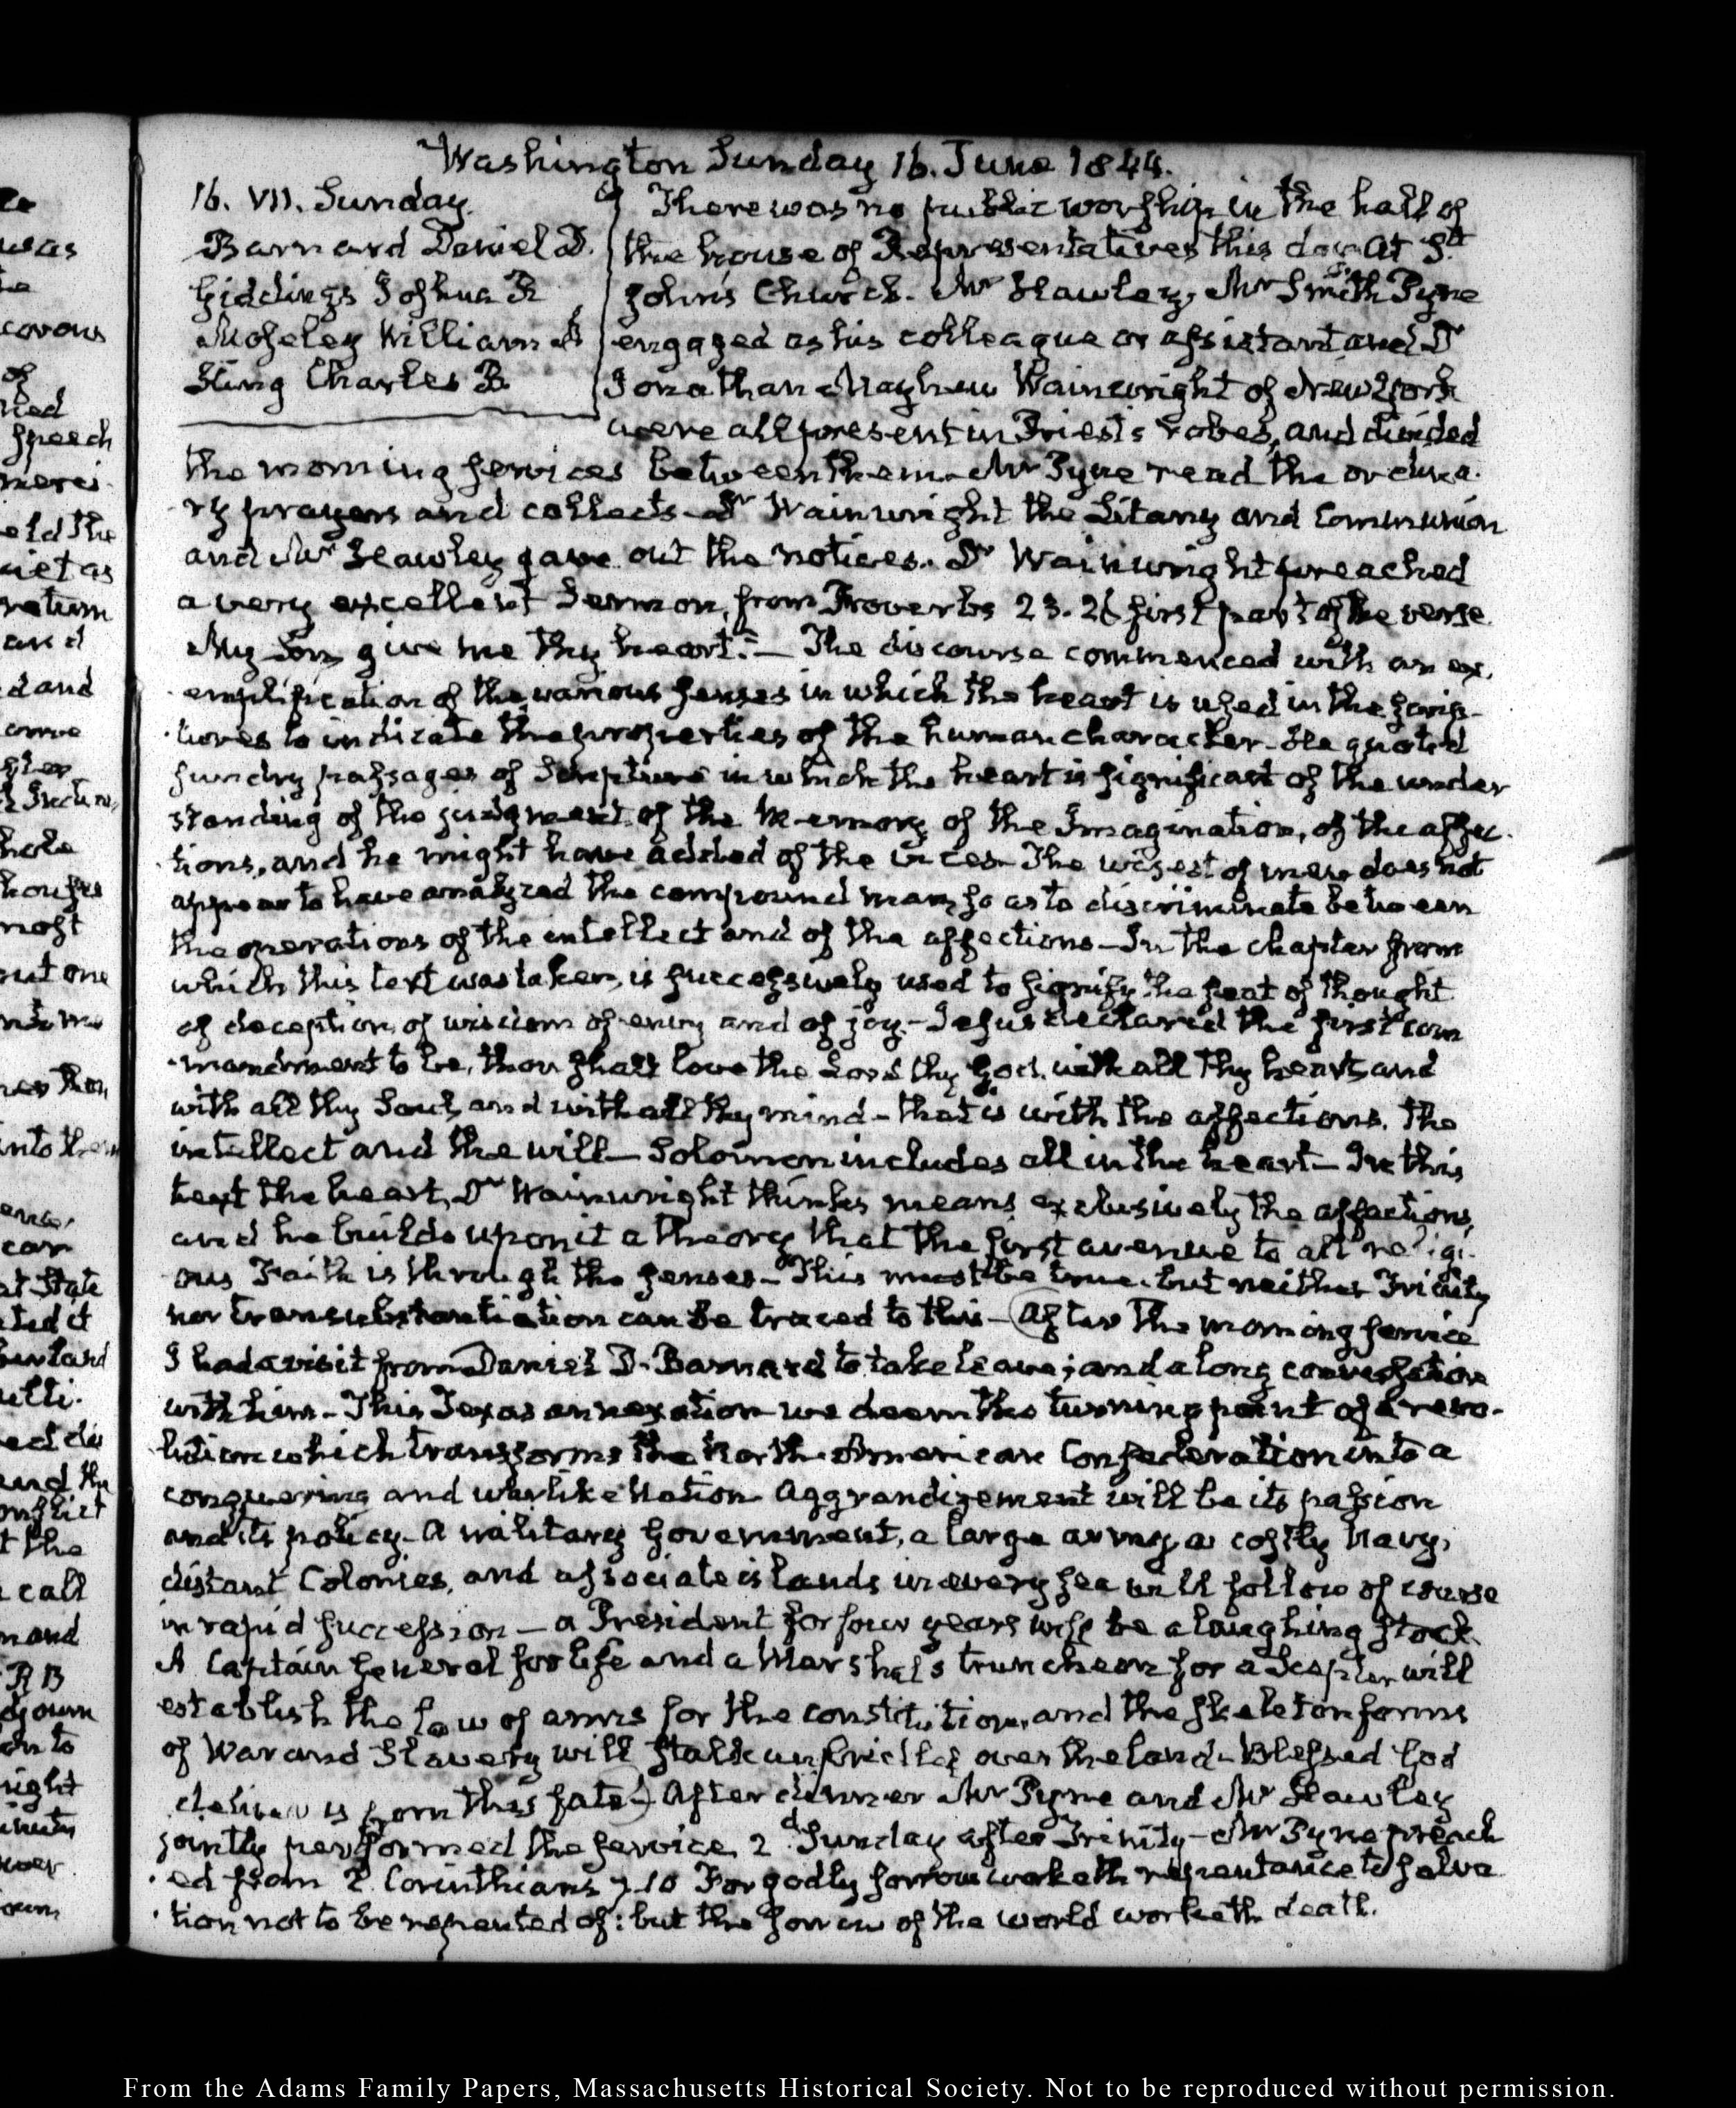 Washington Sunday 16. June 1844.
16. VII. Sunday.
Barnard Daniel D.
Giddings Joshua R
Moseley William A
King Charles B.
There was no public worship in the hall of
the house of Representatives this day. At St.
John's Church. Mr Hawley, Mr Smith Pyne
engaged as his colleague or assistant and Dr
Jonathan Mayhew Wainwright of New York
were all present in Priest's robes, and divided
the morning services between them. Mr Pyne read the ordina-
ry prayers and collects - Dr Wainwright the Litany and Communion
and Mr Hawley gave out the notices. Dr Wainwright preached
a very excellent Sermon, from Proverbs 23. 26 first part of the verse.
My Son, give me thy heart." — The discourse commenced with an ex-
emplification of the various senses in which the heart is used in the scrip-
tures to indicate the properties of the human character. He quoted
sundry passages of Scripture in which the heart is significant of the under
standing of the judgment, of the Memory, of the Imagination, of the affec-
tions, and he might have added of the vices. The wisest of men does not
appear to have analyzed the compound man, so as to discriminate between
the operations of the intellect and of the affections — In the chapter from
which this text was taken, is successively used to signify the seat of thought
of deception, of wisdom of envy and of joy. - Jesus declared the first com
-mandment to be, thou shalt love the Lord thy God, with all thy heart, and
with all thy Soul, and with all thy mind - that is with the affections. The
intellect and the will — Solomon includes all in the heart — In this
text the heart, Dr Wainwright thinks means exclusively the affections,
and he builds upon it a theory that the first avenue to all religi-
ous Faith is through the senses — This must be true. but neither Trinity
nor transubstantiation can be traced to this — After the morning service
I had a visit from Daniel D. Barnard to take leave; and a long conversation
with him - This Texas annexation we deem the turning point of a revo-
lution which transforms the North-American Confederation into a
conquering and warlike Nation. Aggrandizement will be its passion
and its policy. A military Government, a large army, a costly Navy,
distant Colonies, and associate islands in every sea will follow of course
in rapid succession — a President for four years will be a laughing stock.
A Captain General for life and a Marshal's truncheon for a Scepter will
establish the law of arms for the constitution, and the skeleton forms
of War and Slavery will stalk unbridled over the land - Blessed God
deliver us from this fate!) After dinner Mr Pyne and Mr Hawley
jointly performed the service, 2d Sunday after Trinity - Mr Pyne preach
-ed from 2. Corinthians 7. 10 For godly sorrow worketh repentance to salva
-tion not to be repented of: but the sorrow of the world worketh death.
From the Adams Family Papers, Massachusetts Historical Society. Not to be reproduced without permission.